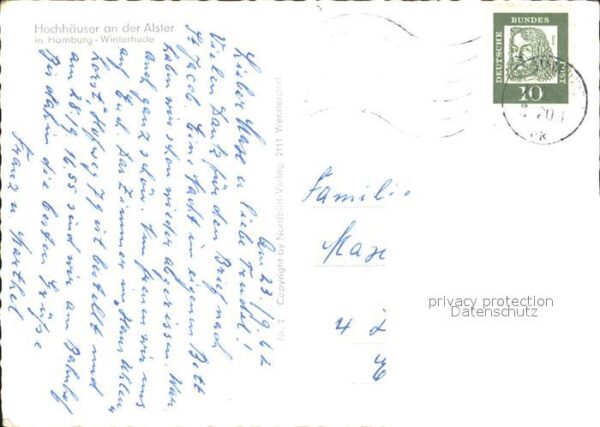 Hochhäuser an der Alster
in Hamburg-Winterhude
Am 23./9.62
Lieber Max u liebe Trudel!
Vielen Dank für den Brief nach
St. Jacob. Eine Nacht im eigenen Bett
haben wir schon wieder abgerissen. War
auch ganz schön. Nun freuen wir uns
auf Euch. Das Zimmer in „Haus Uhlen
horst", Hofweg ist bestellt und
am 28./9. 16.55 sind wir am Bahnhof
Bis dahin die besten Grüße
Franz u Marthel
Nr. 2 Copyright by Nordbild-Verlag 2111 Wennerstorf
DEUTSCHE
BUNDES
POST
10
Familie
Max
4
privacy protection
Datenschutz